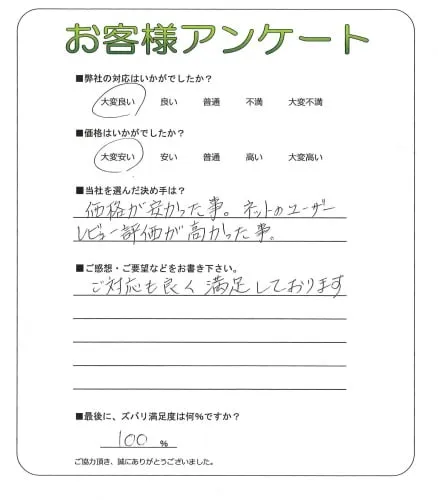 お客様アンケート
■弊社の対応はいかがでしたか?
大変良い 良い 普通 不満 大変不満
■価格はいかがでしたか?
大変安い 安い 普通 高い 大変高い
■当社を選んだ決め手は?
価格が安かった事。ネットのユーザー
レビュー評価が高かった事。
■ご感想・ご要望などをお書き下さい。
ご対応も良く満足しております
■最後に、ズバリ満足度は何%ですか?
100 %
ご協力頂き、誠にありがとうございました。